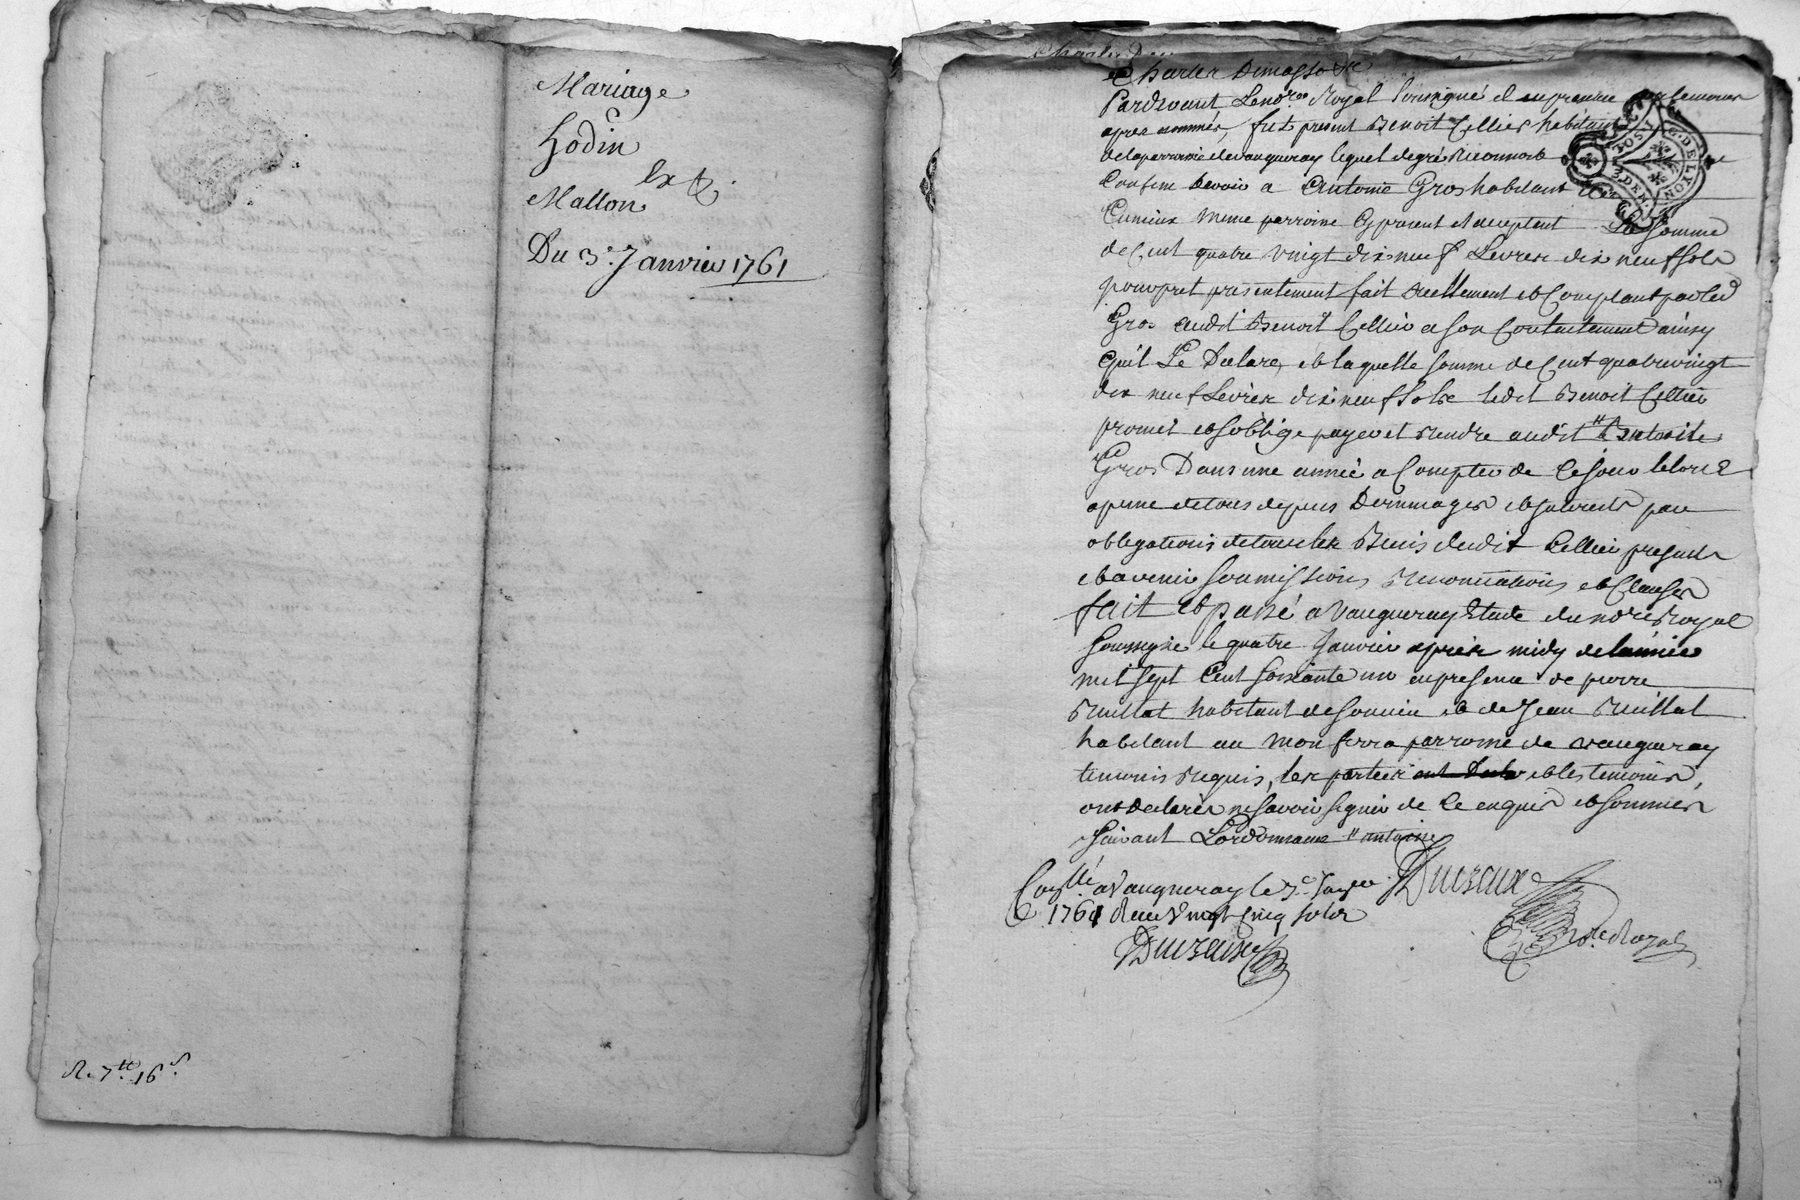 Mariage
hodin
Mallon
Du 3e. Janvier 1761
R. 7tt. 16s.
Charles
Pardevant Le nore Royal soussigné et en presence
apres nommés, fut present Benoit Cellier habitant
de la parroisse de vaugneray lequel de gré reconnoit
Confesse devoir a Antoine Gros habitant
meme parroisse cy present et acceptant La somme
de Cent quatre vingt dix neuf Livres dix neuf sols
pour pret presentement fait reellement et Comptant par led
Gros audit Benoit Cellier a son Contentement ainsy
quil Le Declare, et laquelle somme de Cent quatrevingt
dix neuf Livres dix neuf sols ledit Benoit Cellier
promet et soblige payer et rendre audit
Gros Dans une année a Compter de Ce jour
a peine de tous depens Dommages et interests par
obligations de tous les Biens dudit Cellier presents
et avenir soumissions renonciations et Clauses
fait et passé a Vaugneray Etude du nore Royal
soussigne le quatre Janvier apres midy de lannée
mil sept Cent soixante un en presence de pierre
Ruillat habitant de et de Jean Ruillat
habitant au parroisse de vaugneray
temoins requis, les parties et les temoins
ont declarés ne savoir signer de Ce enquis et sommés
suivant Lordonnance " antoine
Conllé a Vaugneray le 7e. Janer Duizeux
1761 Recu vingt Cinq sols
nre Royal
Duizeux
G. DE LYON
3 DEN.